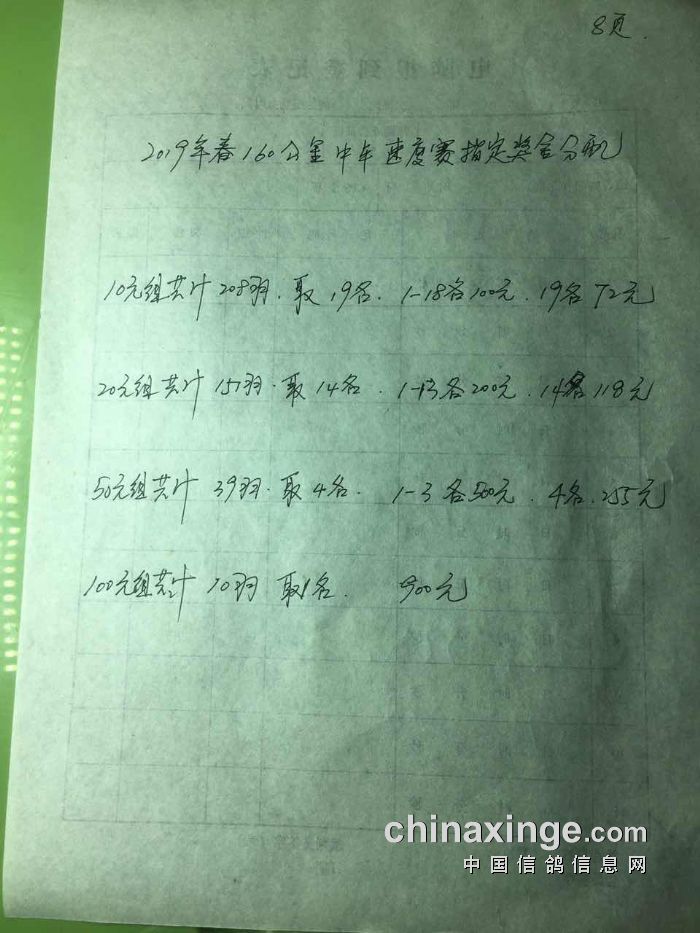 8页.
2019年春160公里中牟速度赛指定奖金分配
10元组共计 208羽. 取19名. 1-18各100元. 19名72元
20元组共计 151羽. 取14名. 1-13各200元. 14名118元
50元组共计 39羽. 取4名. 1-3各500元. 4名.255元
100元组共计 10羽 取1名. 900元
chinaxinge.com
中国信鸽信息网